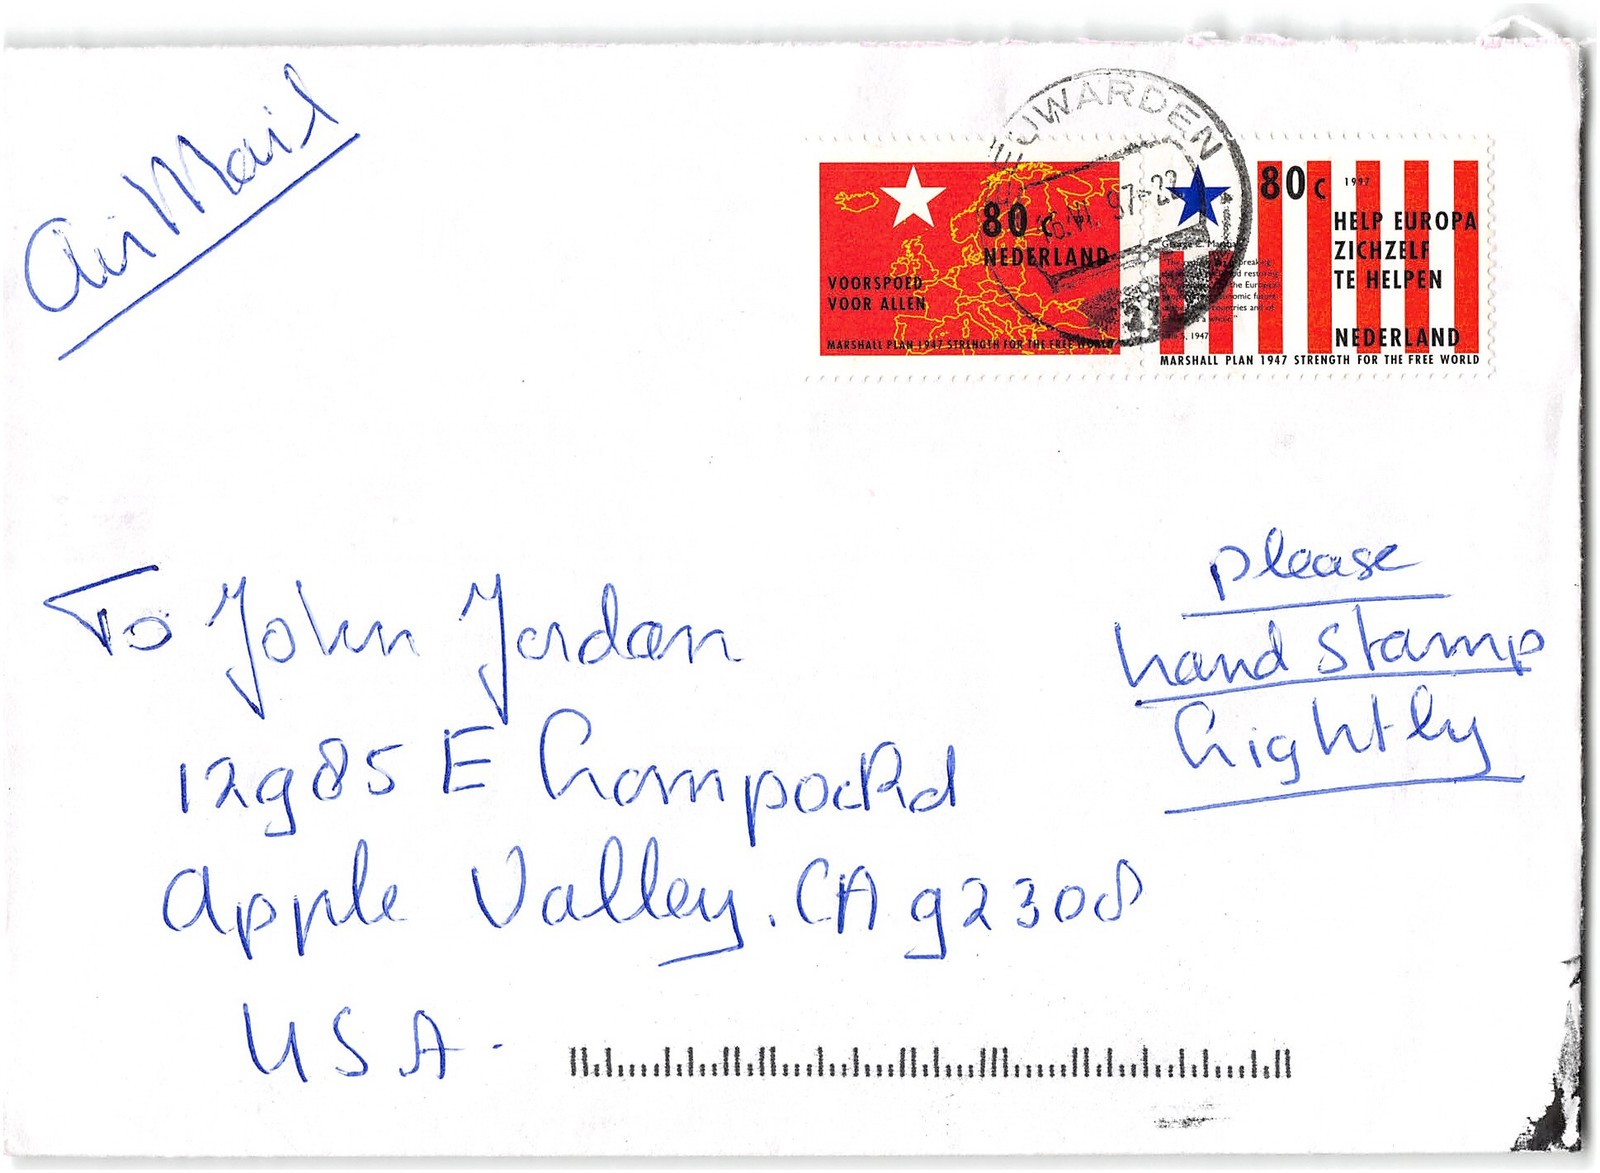 Air Mail
EUWARDEN
97-22
80 c
NEDERLAND
VOORSPOED
VOOR ALLEN
MARSHALL PLAN 1947 STRENGTH FOR THE FREE WORLD
80 c 1997
HELP EUROPA
ZICHZELF
TE HELPEN
NEDERLAND
George C. Marshall
MARSHALL PLAN 1947 STRENGTH FOR THE FREE WORLD
please
hand stamp
hightly
To John Jordan
12985 E Compoc Rd
Apple Valley. CA 92308
USA.